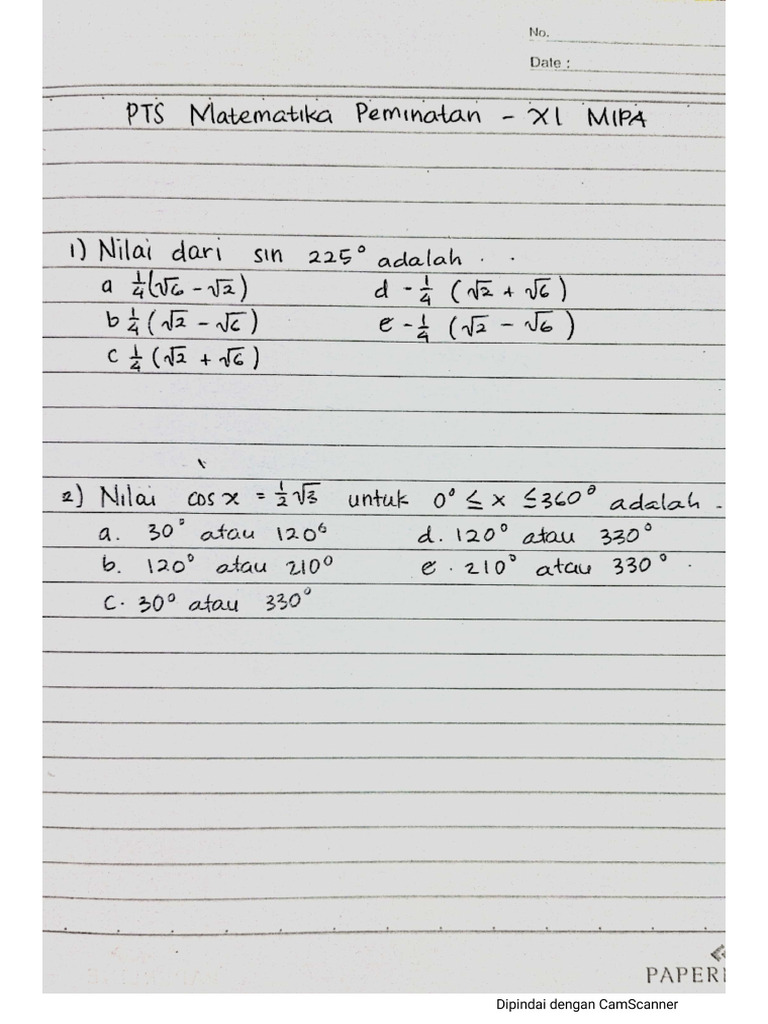 No.
Date :
PTS Matematika Peminatan - XI MIPA
1) Nilai dari sin 225° adalah . .
a 1/4(√6 - √2) d -1/4 (√2 + √6)
b 1/4 (√2 - √6) e -1/4 (√2 - √6)
c 1/4 (√2 + √6)
2) Nilai cos x = 1/2 √3 untuk 0° ≤ x ≤ 360° adalah -
a. 30° atau 120° d. 120° atau 330°
b. 120° atau 210° e. 210° atau 330° .
c. 30° atau 330°
PAPER
Dipindai dengan CamScanner